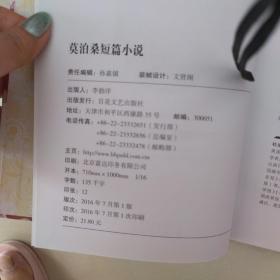 莫泊桑短篇小说
责任编辑：孙嘉镇 装帧设计：文贤阁
出版人：李勃洋
出版发行：百花文艺出版社
地址：天津市和平区西康路 35 号 邮编：300051
电话传真：+86-22-23332651（发行部）
+86-22-23332656（总编室）
+86-22-23332478（邮购部）
主页：http://www.bhpubl.com.cn
印刷：北京富达印务有限公司
开本：710mm×1000mm 1/16
字数：135 千字
印张：12
版次：2016 年 7 月第 1 版
印次：2016 年 7 月第 1 次印刷
定价：21.80 元